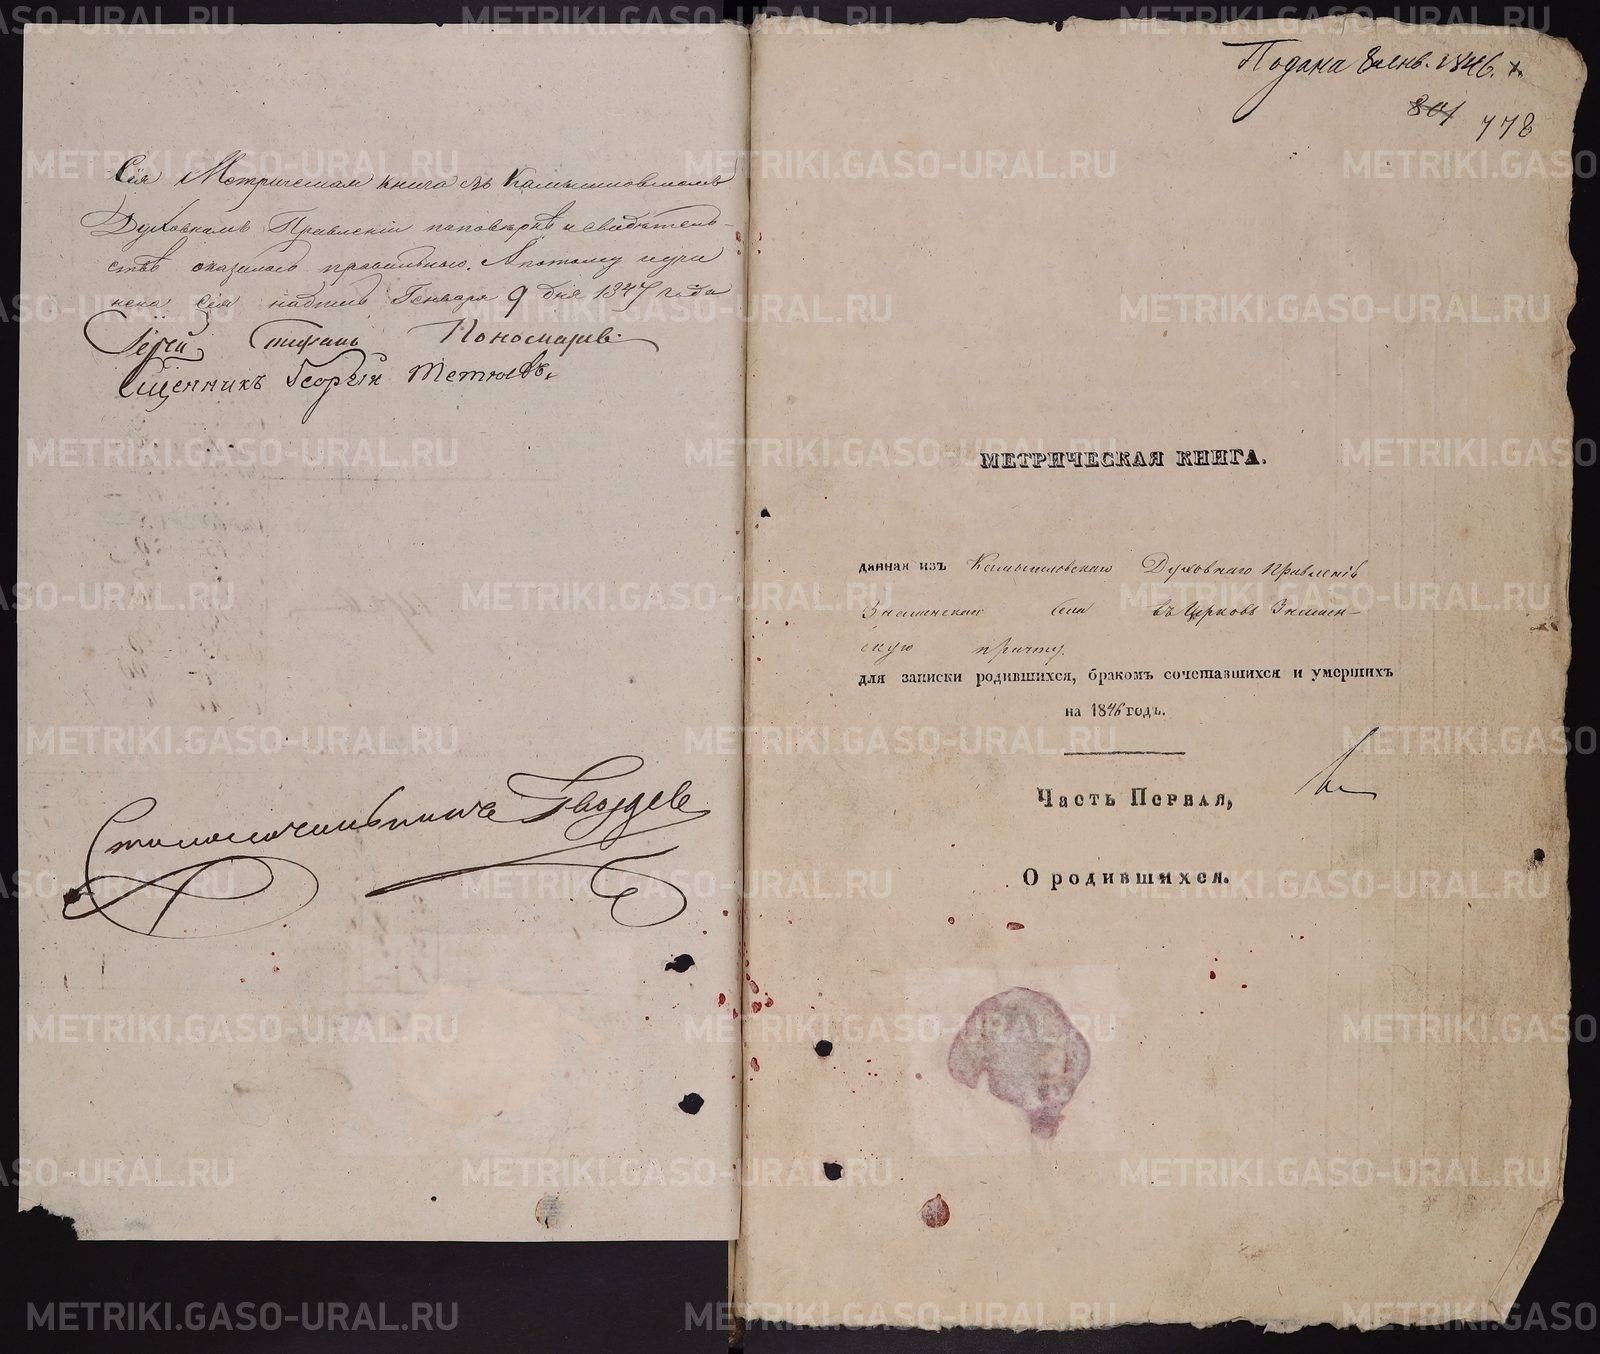 Сія Метрическая книга въ Камышловскомъ
Духовномъ Правленіи по повѣркѣ и свидѣтель-
ствѣ оказалась правильною. А потому и учи
нена сія надпись Генваря 9 дня 1847 года
Іерей Стефанъ Пономаревъ
Священникъ Георгій
Столоначальникъ Гвоздевъ
Подана 1846.
801
778
МЕТРИЧЕСКАЯ КНИГА.
данная изъ Камышловскаго Духовнаго Правленія
Знаменскаго села въ Церковь Знамен-
скую причту.
для записки родившихся, бракомъ сочетавшихся и умершихъ
на 1846 годъ.
Часть Первая,
О родившихся.
METRIKI.GASO-URAL.RU